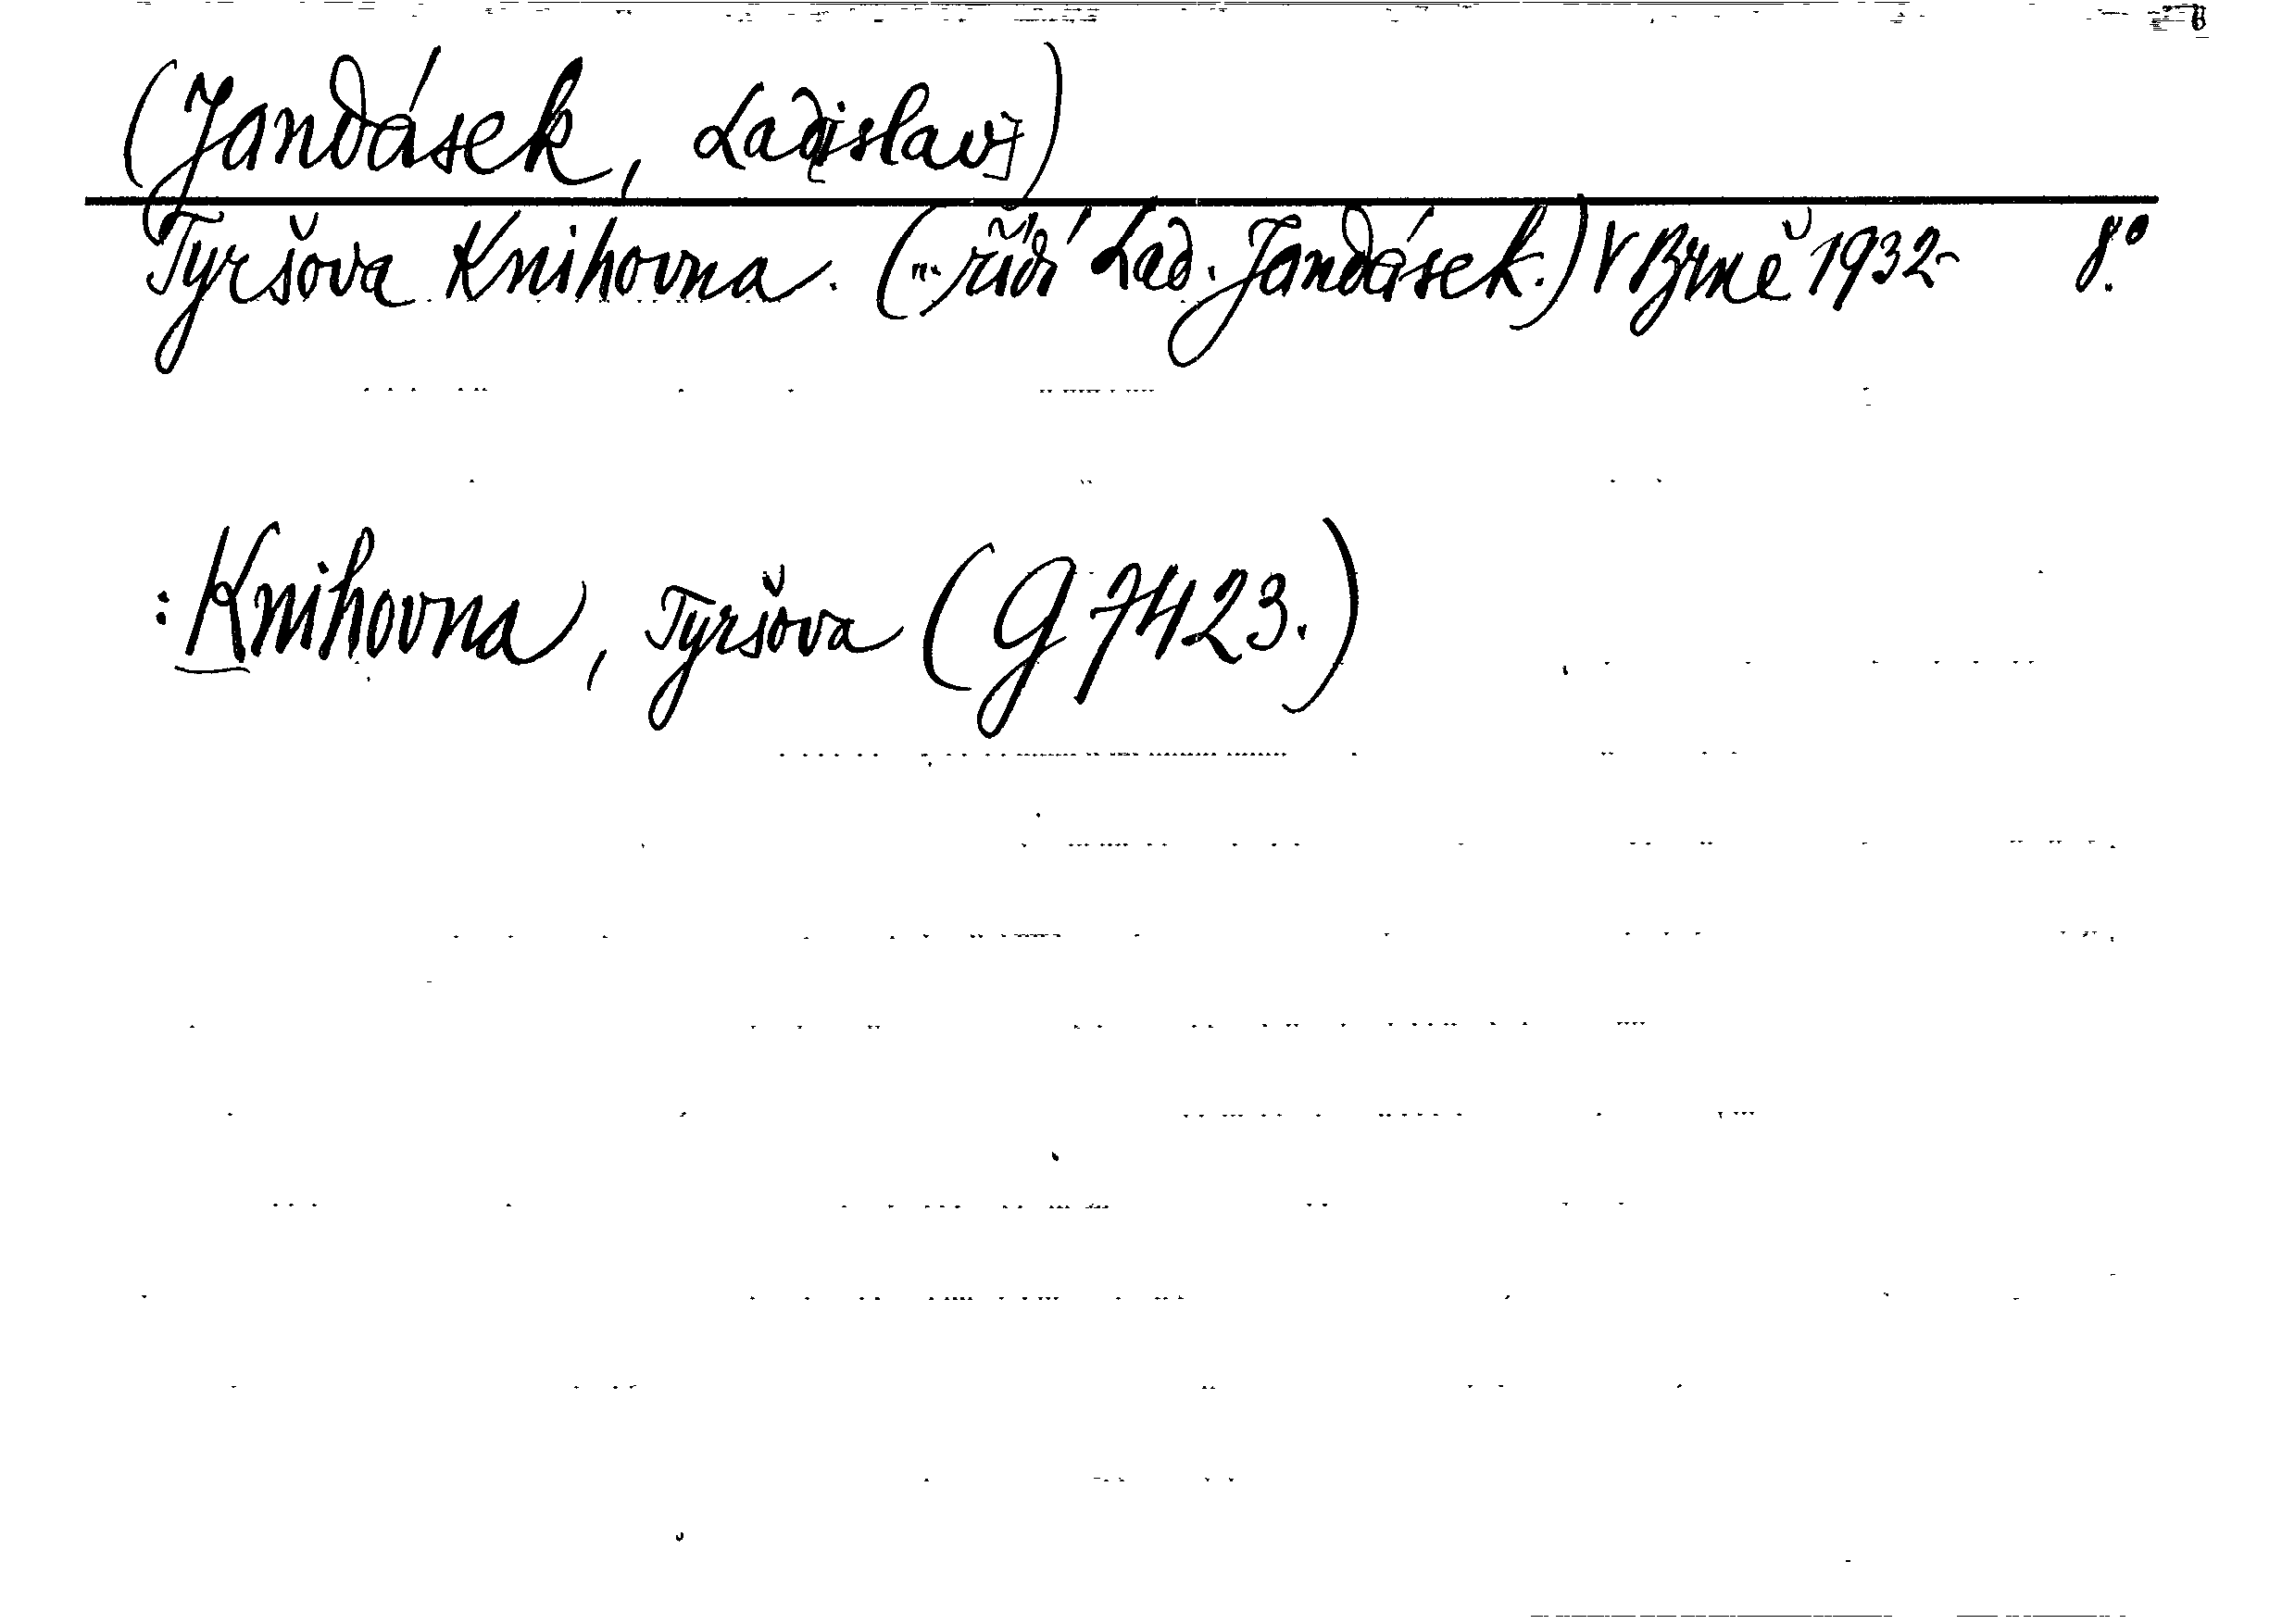 (Jandásek, Lad[islav])
Tyršova Knihovna. (... řídí Lad. Jandásek.) V Brně 1932- 8.°
: Knihovna, Tyršova (G 7423.)